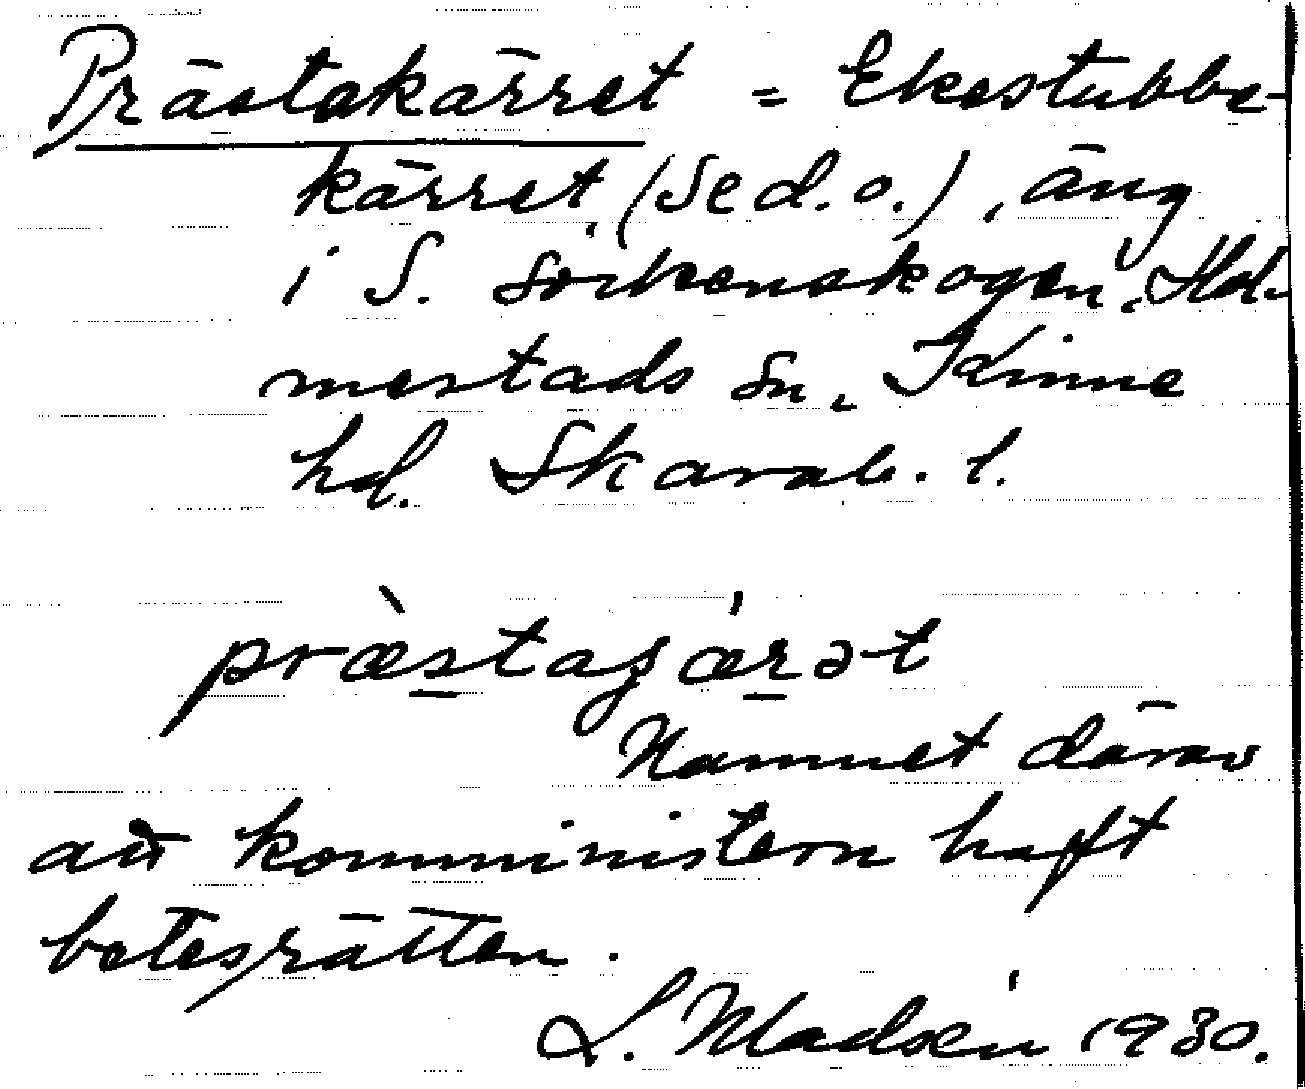 Prästakärret = Ekestubbe-
kärret (Se d. o.), äng
i S. Sörkenskogen, Hol-
mestads sn, Kinne
hd. Skarab. l.
præ̀staʒǽrət
Namnet därav
att komministern haft
betesrätten.
L. Madsén 1930.